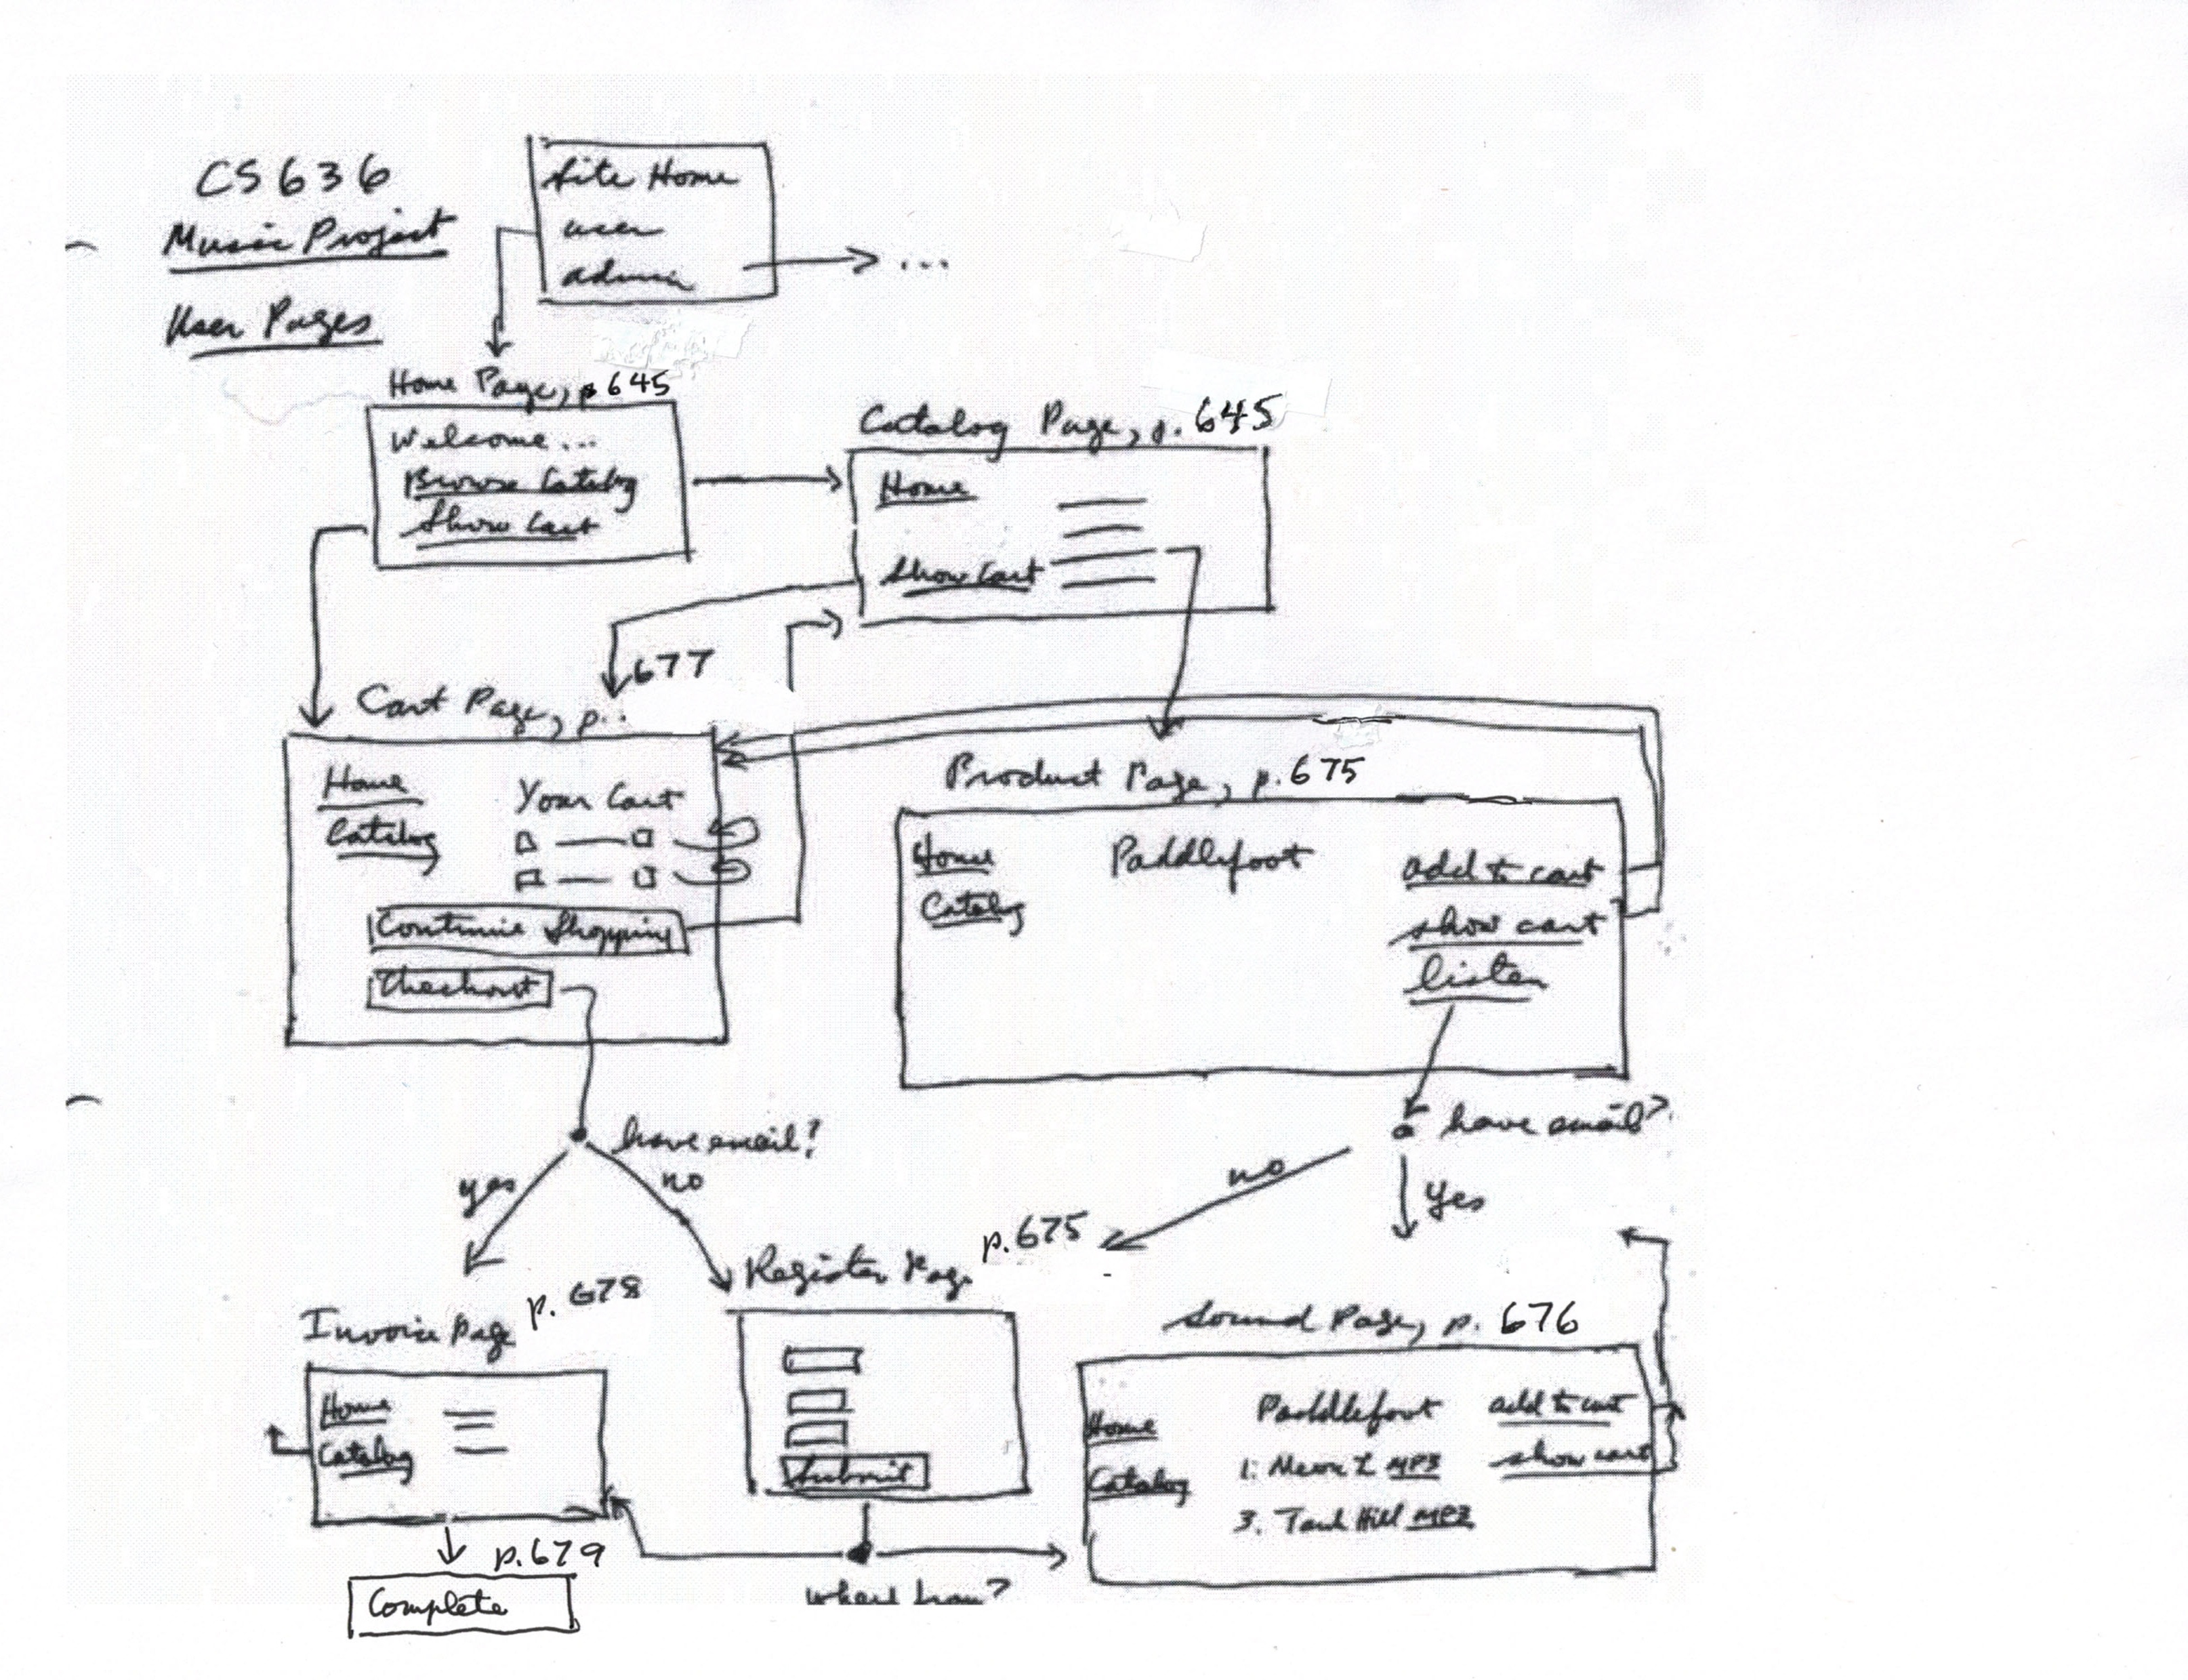 CS636
Music Project
User Pages
Site Home
user
admin
...
Home Page, p 645
Welcome...
Browse Catalog
Show Cart
Catalog Page, p. 645
Home
Show Cart
677
Cart Page, p.
Home
Catalog
Your Cart
Continue Shopping
Checkout
Product Page, p. 675
Home
Catalog
Paddlefoot
add to cart
show cart
listen
have email?
yes
no
have email?
no
yes
Invoice Page p. 678
Home
Catalog
p.679
Complete
Register Page p.675
Submit
where from?
Sound Page, p. 676
Home
Catalog
Paddlefoot
1. MP3
3. Tank Hill MP3
add to cart
show cart